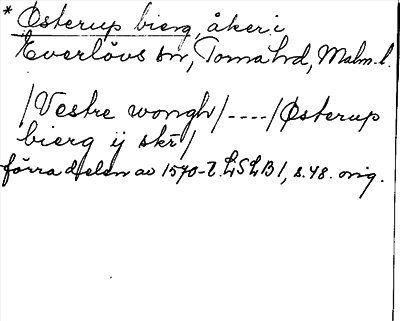 * Østerup bierg, åker i
Everlövs sn, Torna hd, Malm. l.
/Vestre wongh/----/Østerup
bierg ij skr̄/
förra delen av 1570-t. LSLB I, s. 48. orig.